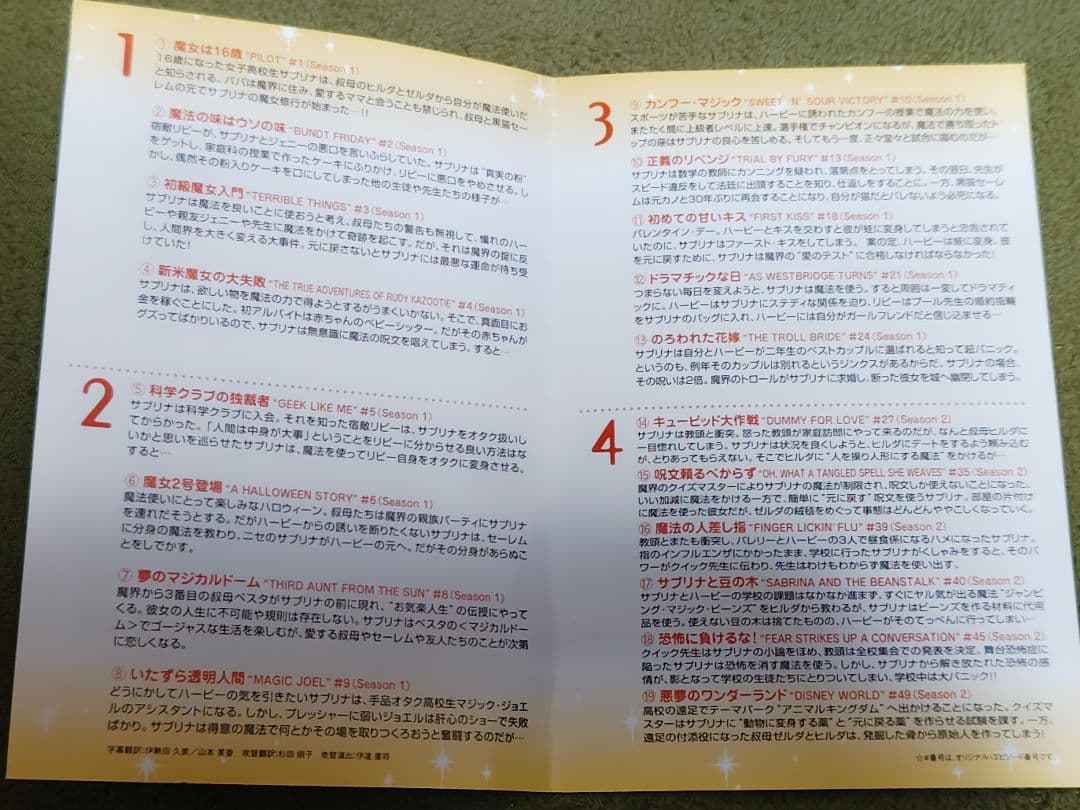 1
① 魔女は16歳 "PILOT" #1(Season 1)
16歳になった女子高校生サブリナは、叔母のヒルダとゼルダから自分が魔法使いだ
と知らされる。パパは魔界に住み、愛するママと会うことも禁じられ、叔母と黒猫セー
レムの元でサブリナの魔女修行が始まった…!!
② 魔法の味はウソの味 "BUNDT FRIDAY" #2(Season 1)
宿敵リビーが、サブリナとジェニーの悪口を言いふらしていた。サブリナは"真実の粉"
をゲットし、家庭科の授業で作ったケーキにふりかけ、リビーに悪口をやめさせる。し
かし、偶然その粉入りケーキを口にしてしまった他の生徒や先生たちの様子が…
③ 初級魔女入門 "TERRIBLE THINGS" #3(Season 1)
サブリナは魔法を良いことに使おうと考え、叔母たちの警告も無視して、憧れのハー
ビーや親友ジェニーや先生に魔法をかけて奇跡を起こす。だが、それは魔界の掟に反
し、人間界を大きく変える大事件。元に戻さないとサブリナには最悪な運命が待ち受
けていた!
④ 新米魔女の大失敗 "THE TRUE ADVENTURES OF RUDY KAZOOTIE" #4(Season 1)
サブリナは、欲しい物を魔法の力で得ようとするがうまくいかない。そこで、真面目にお
金を稼ぐことにした。初アルバイトは赤ちゃんのベビーシッター。だがその赤ちゃんが
グズってばかりいるので、サブリナは無意識に魔法の呪文を唱えてしまう。すると…
2
⑤ 科学クラブの独裁者 "GEEK LIKE ME" #5(Season 1)
サブリナは科学クラブに入会。それを知った宿敵リビーは、サブリナをオタク扱いし
てからかった。「人間は中身が大事」ということをリビーに分からせる良い方法はな
いかと思いを巡らせたサブリナは、魔法を使ってリビー自身をオタクに変身させる。
すると…
⑥ 魔女2号登場 "A HALLOWEEN STORY" #6(Season 1)
魔法使いにとって楽しみなハロウィーン。叔母たちは魔界の親族パーティにサブリナ
を連れだそうとする。だがハービーからの誘いを断りたくないサブリナは、セーレム
に分身の魔法を教わり、ニセのサブリナがハービーの元へ。だがその分身があらぬこ
とをしでかす。
⑦ 夢のマジカルドーム "THIRD AUNT FROM THE SUN" #8(Season 1)
魔界から3番目の叔母ベスタがサブリナの前に現れ、"お気楽人生"の伝授にやって
くる。彼女の人生に不可能や規則は存在しない。サブリナはベスタの<マジカルドー
ム>でゴージャスな生活を楽しむが、愛する叔母やセーレムや友人たちのことが次第
に恋しくなる。
⑧ いたずら透明人間 "MAGIC JOEL" #9(Season 1)
どうにかしてハービーの気を引きたいサブリナは、手品オタク高校生マジック・ジョエ
ルのアシスタントになる。しかし、プレッシャーに弱いジョエルは肝心のショーで失敗
ばかり。サブリナは得意の魔法で何とかその場を取りつくろおうと奮闘するのだが…
字幕翻訳:伊勢田 久美/山本 美香 吹替翻訳:杉田 朋子 吹替演出:伊達 康将
3
⑨ カンフー・マジック "SWEET 'N' SOUR VICTORY" #10(Season 1)
スポーツが苦手なサブリナは、ハービーに誘われたカンフーの授業で魔法の力を使い、
またたく間に上級者レベルに上達。選手権でチャンピオンになるが、魔法で勝ち取ったト
ップの座はサブリナの良心を苦しめる。そしてもう一度、正々堂々と試合に臨むのだが…
⑩ 正義のリベンジ "TRIAL BY FURY" #13(Season 1)
サブリナは数学の教師にカンニングを疑われ、落第点をとってしまう。その翌日、先生が
スピード違反をして法廷に出頭することを知り、仕返しをすることに。一方、黒猫セーレ
ムは元カノと30年ぶりに再会することになり、自分が猫だとバレないよう必死になる。
⑪ 初めての甘いキス "FIRST KISS" #18(Season 1)
バレンタイン・デー。ハービーとキスを交わすと彼が蛙に変身してしまうと忠告されて
いたのに、サブリナはファースト・キスをしてしまう。 案の定、ハービーは蛙に変身。彼
を元に戻すために、サブリナは魔界の"愛のテスト"に合格しなければならなかった!
⑫ ドラマチックな日 "AS WESTBRIDGE TURNS" #21(Season 1)
つまらない毎日を変えようと、サブリナは魔法を使う。すると周囲は一変してドラマティ
ックに。ハービーはサブリナにステディな関係を迫り、リビーはプール先生の婚約指輪
をサブリナのバッグに入れ、ハービーには自分がガールフレンドだと信じ込ませる…
⑬ のろわれた花嫁 "THE TROLL BRIDE" #24(Season 1)
サブリナは自分とハービーが二年生のベストカップルに選ばれると知って超パニック。
というのも、例年そのカップルは別れるというジンクスがあるからだ。サブリナの場合、
その呪いは2倍。魔界のトロールがサブリナに求婚し、断った彼女を城へ幽閉してしまう。
4
⑭ キューピッド大作戦 "DUMMY FOR LOVE" #27(Season 2)
サブリナは教頭と衝突。怒った教頭が家庭訪問にやって来るのだが、なんと叔母ヒルダに
一目惚れしてしまう。サブリナは状況を良くしようと、ヒルダにデートをするよう頼み込む
が、とりあってもらえない。そこでヒルダに"人を操り人形にする魔法"をかけるが…
⑮ 呪文頼るべからず "OH, WHAT A TANGLED SPELL SHE WEAVES" #35(Season 2)
魔界のクイズマスターによりサブリナの魔法が制限され、呪文しか使えないことになった。
いい加減に魔法をかける一方で、簡単に"元に戻す"呪文を使うサブリナ。部屋の片付け
に魔法を使った彼女だが、ゼルダの絨毯をめぐって事態はどんどんややこしくなっていく。
⑯ 魔法の人差し指 "FINGER LICKIN' FLU" #39(Season 2)
教頭とまたも衝突し、バレリーとハービーの3人で昼食係になるハメになったサブリナ。
指のインフルエンザにかかったまま、学校に行ったサブリナがくしゃみをすると、そのパ
ワーがクイック先生に伝わり、先生はわけもわからず魔法を使い出す。
⑰ サブリナと豆の木 "SABRINA AND THE BEANSTALK" #40(Season 2)
サブリナとハービーの学校の課題はなかなか進まず、すぐにヤル気が出る魔法"ジャンピ
ング・マジック・ビーンズ"をヒルダから教わるが、サブリナはビーンズを作る材料に代用
品を使う。使えない豆の木は捨てたものの、ハービーがそのてっぺんに行ってしまい…
⑱ 恐怖に負けるな! "FEAR STRIKES UP A CONVERSATION" #45(Season 2)
クイック先生はサブリナの小論をほめ、教頭は全校集会での発表を決定。舞台恐怖症に
陥ったサブリナは恐怖を消す魔法を使う。しかし、サブリナから解き放たれた恐怖の感
情が、影となって学校の生徒たちにとりついてしまい、学校中は大パニック!!
⑲ 悪夢のワンダーランド "DISNEY WORLD" #49(Season 2)
高校の遠足でテーマパーク"アニマルキングダム"へ出かけることになった。クイズマ
スターはサブリナに"動物に変身する薬"と"元に戻る薬"を作らせる試験を課す。一方、
遠足の付添役になった叔母ゼルダとヒルダは、発掘した骨から原始人を作ってしまう!
☆#番号は、オリジナル・エピソード番号です。